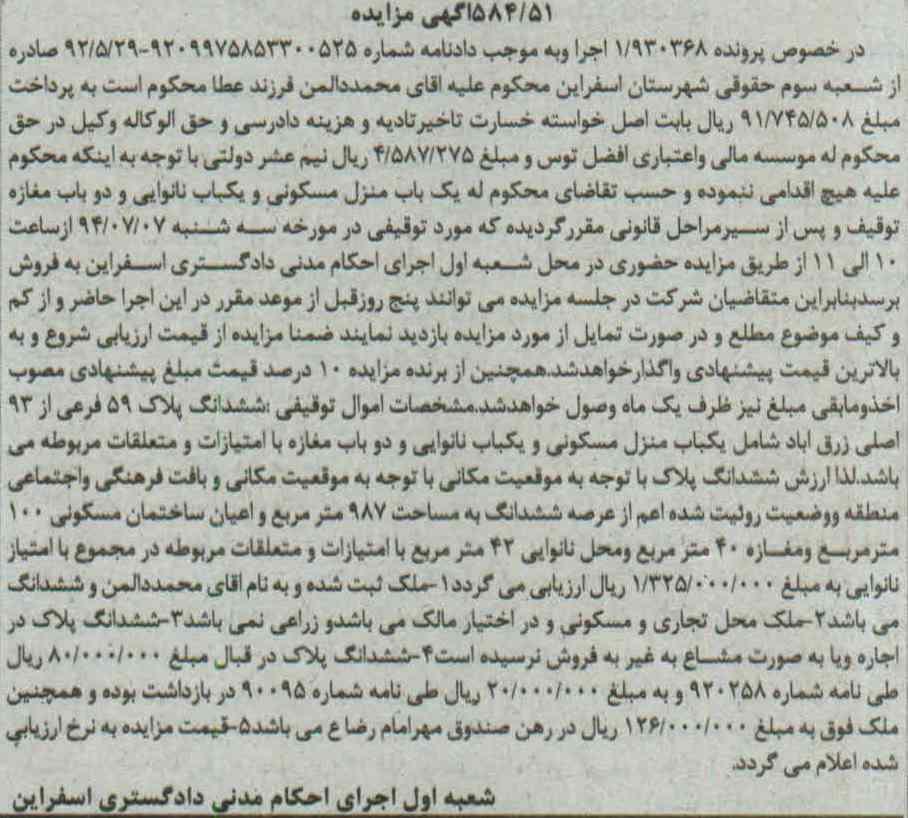 ۵۸۴/۵۱اگهی مزایده
در خصوص پرونده ۱/۹۳۰۳۶۸ اجرا وبه موجب دادنامه شماره ۹۲۰۹۹۷۵۸۵۳۳۰۰۵۲۵-۹۲/۵/۲۹ صادره
از شعبه سوم حقوقی شهرستان اسفراین محکوم علیه اقای محمددالمن فرزند عطا محکوم است به پرداخت
مبلغ ۹۱/۷۴۵/۵۰۸ ریال بابت اصل خواسته خسارت تاخیرتادیه و هزینه دادرسی و حق الوکاله وکیل در حق
محکوم له موسسه مالی واعتباری افضل توس و مبلغ ۴/۵۸۷/۲۷۵ ریال نیم عشر دولتی با توجه به اینکه محکوم
علیه هیچ اقدامی ننموده و حسب تقاضای محکوم له یک باب منزل مسکونی و یکباب نانوایی و دو باب مغازه
توقیف و پس از سیرمراحل قانونی مقررگردیده که مورد توقیفی در مورخه سه شنبه ۹۴/۰۷/۰۷ ازساعت
۱۰ الی ۱۱ از طریق مزایده حضوری در محل شعبه اول اجرای احکام مدنی دادگستری اسفراین به فروش
برسدبنابراین متقاضیان شرکت در جلسه مزایده می توانند پنج روزقبل از موعد مقرر در این اجرا حاضر و از کم
و کیف موضوع مطلع و در صورت تمایل از مورد مزایده بازدید نمایند ضمنا مزایده از قیمت ارزیابی شروع و به
بالاترین قیمت پیشنهادی واگذارخواهدشد.همچنین از برنده مزایده ۱۰ درصد قیمت مبلغ پیشنهادی مصوب
اخذومابقی مبلغ نیز ظرف یک ماه وصول خواهدشد.مشخصات اموال توقیفی :ششدانگ پلاک ۵۹ فرعی از ۹۳
اصلی زرق اباد شامل یکباب منزل مسکونی و یکباب نانوایی و دو باب مغازه با امتیازات و متعلقات مربوطه می
باشد.لذا ارزش ششدانگ پلاک با توجه به موقعیت مکانی با توجه به موقعیت مکانی و بافت فرهنگی واجتماعی
منطقه ووضعیت رولیت شده اعم از عرصه ششدانگ به مساحت ۹۸۷ متر مربع و اعیان ساختمان مسکونی ۱۰۰
مترمربع ومغازه ۴۰ متر مربع ومحل نانوایی ۴۲ متر مربع با امتیازات و متعلقات مربوطه در مجموع با امتیاز
نانوایی به مبلغ ۱/۳۲۵/۰۰۰/۰۰۰ ریال ارزیابی می گردد۱-ملک ثبت شده و به نام اقای محمددالمن و ششدانگ
می باشد۲-ملک محل تجاری و مسکونی و در اختیار مالک می باشدو زراعی نمی باشد۳-ششدانگ پلاک در
اجاره ویا به صورت مشاع به غیر به فروش نرسیده است۴-ششدانگ پلاک در قبال مبلغ ۸۰/۰۰۰/۰۰۰ ریال
طی نامه شماره ۹۲۰۲۵۸ و به مبلغ ۲۰/۰۰۰/۰۰۰ ریال طی نامه شماره ۹۰۰۹۵ در بازداشت بوده و همچنین
ملک فوق به مبلغ ۱۲۶/۰۰۰/۰۰۰ ریال در رهن صندوق مهرامام رضا ع می باشد۵-قیمت مزایده به نرخ ارزیابی
شده اعلام می گردد.
شعبه اول اجرای احکام مدنی دادگستری اسفراین